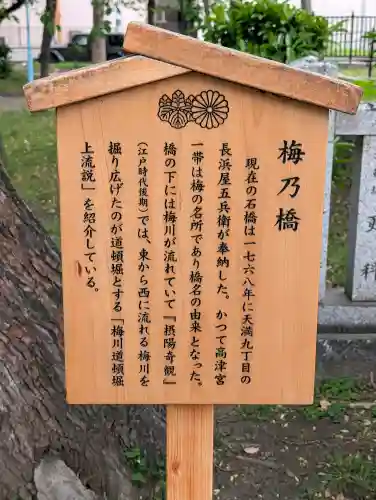 梅乃橋
現在の石橋は一七六八年に天満九丁目の
長浜屋五兵衛が奉納した。かつて高津宮
一帯は梅の名所であり橋名の由来となった。
橋の下には梅川が流れていて『摂陽奇観』
（江戸時代後期）では、東から西に流れる梅川を
掘り広げたのが道頓堀とする「梅川道頓堀
上流説」を紹介している。